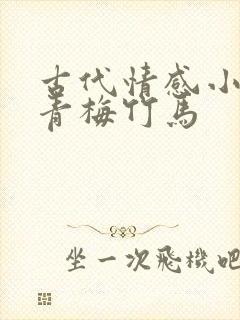 古代情感小
青梅竹馬
坐一次飛機吧